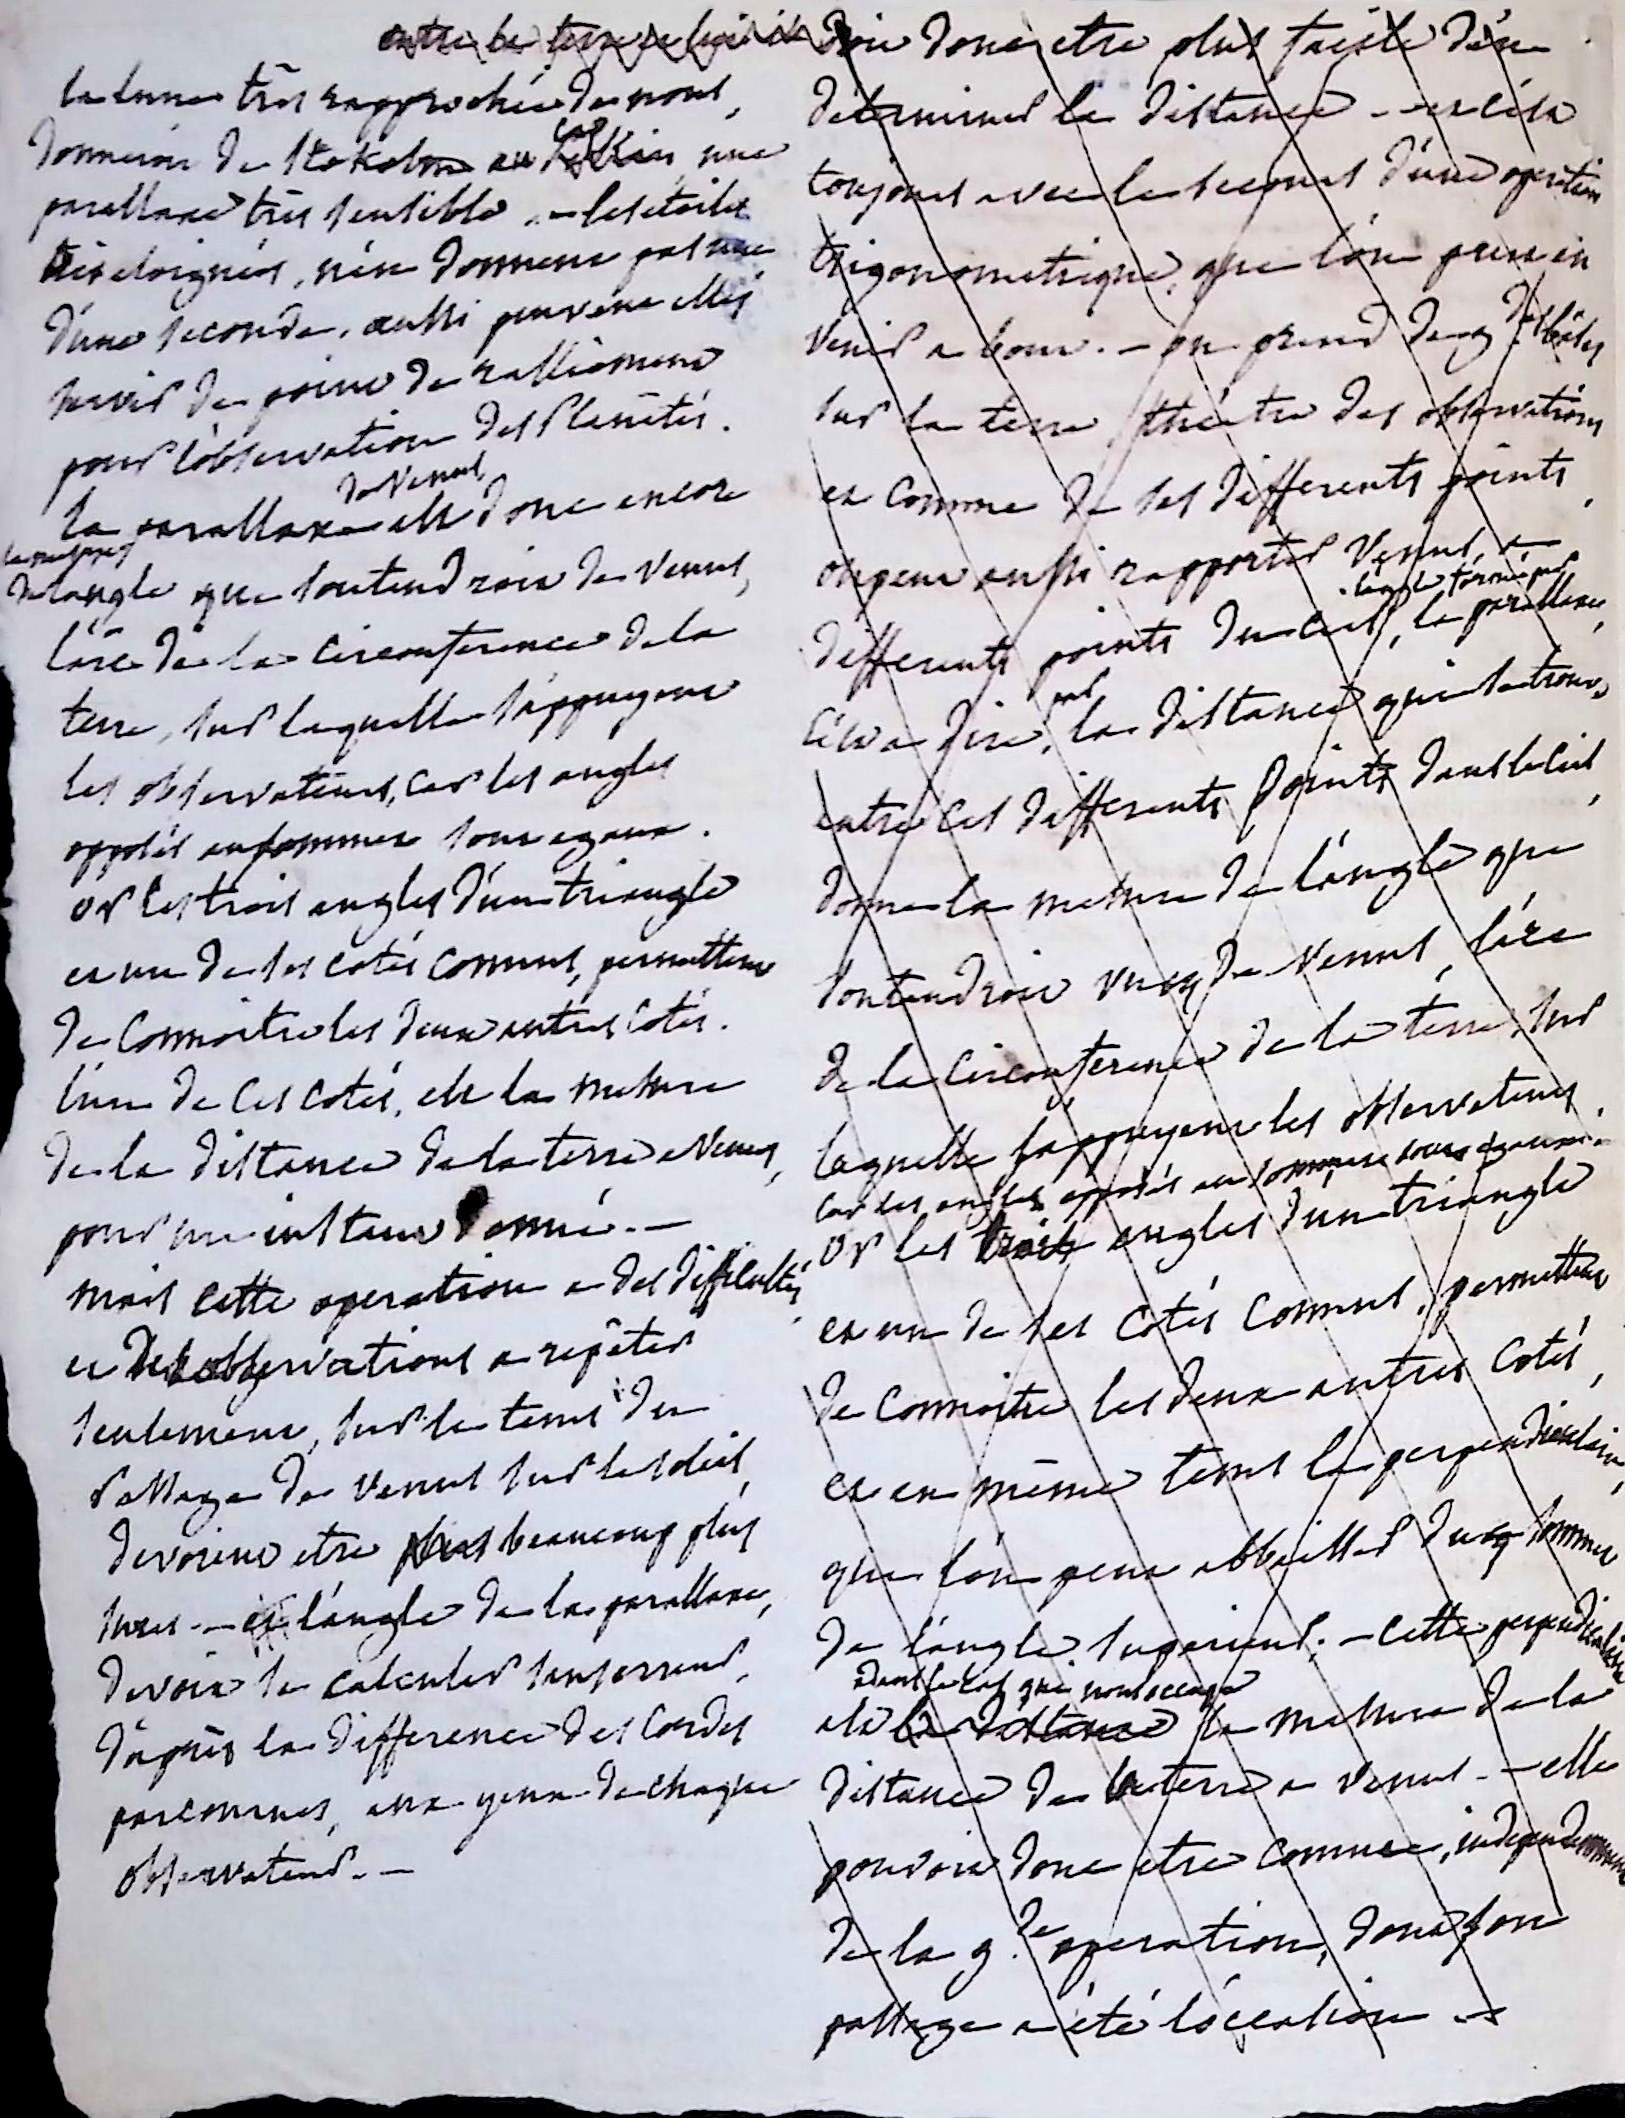 entre la terre
la lune très rapprochée de nous,
donneroit de Stokolm au Cap une
parallaxe très sensible, — les étoiles
très eloignées, n'en donnent pas une
d'une seconde, aussi peuvent elles
servir de point de ralliement
pour l'observation des Planètes.
de Venus
la parallaxe est donc encore
la mesure
de l'angle que soutendroit de Venus,
l'arc de la circonference de la
terre, sur laquelle s'appuyent
les observateurs, car les angles
opposés au sommet sont egaux.
or les trois angles d'un triangle
et un de ses cotés connus, permettent
de connoitre les deux autres cotés.
l'un de ces cotés, est la mesure
de la distance de la terre a Venus,
pour un instant donné. —
mais cette operation a des difficultés,
et des observations a repéter
seulement, sur le tems du
passage de Venus sur le soleil,
devoient etre plus beaucoup plus
sures — et l'angle de la parallaxe,
devoit se calculer sans erreur,
d'après la difference des Cordes
parcourues, aux yeux de chaque
observateur. —
doit donc etre plus facile d'en
determiner la distance — et c'est
toujours avec le secours d'une operation
trigonometrique, que l'on peut en
venir a bout. — on prend de g.des bases
sur la terre théatre des observations
et comme de ses differents points,
on peut aussi rapporter Venus, a
l'angle formé par
differents points du ciel, la parallaxe,
par
c'est a dire, la distance qui se trouve
entre ces differents points dans le Ciel,
donne la mesure de l'angle que
soutendroit vu de Venus, l'arc
de la Circonference de la terre, sur
laquelle s'appuyent les observateurs,
car les angles opposés au sommet sont egaux.
or les trois angles d'un triangle
et un de ses cotés connus, permettent
de connoitre les deux autres cotés,
et en même tems la perpendiculaire,
que l'on peut abbaisser du sommet
de l'angle superieur. — cette perpendiculaire
dans le cas qui nous occupe
est la distance la mesure de la
distance de la terre a Venus — elle
pouvoit donc etre connue, independemment
de la g.de operation, dont son
passage a été l'occasion —